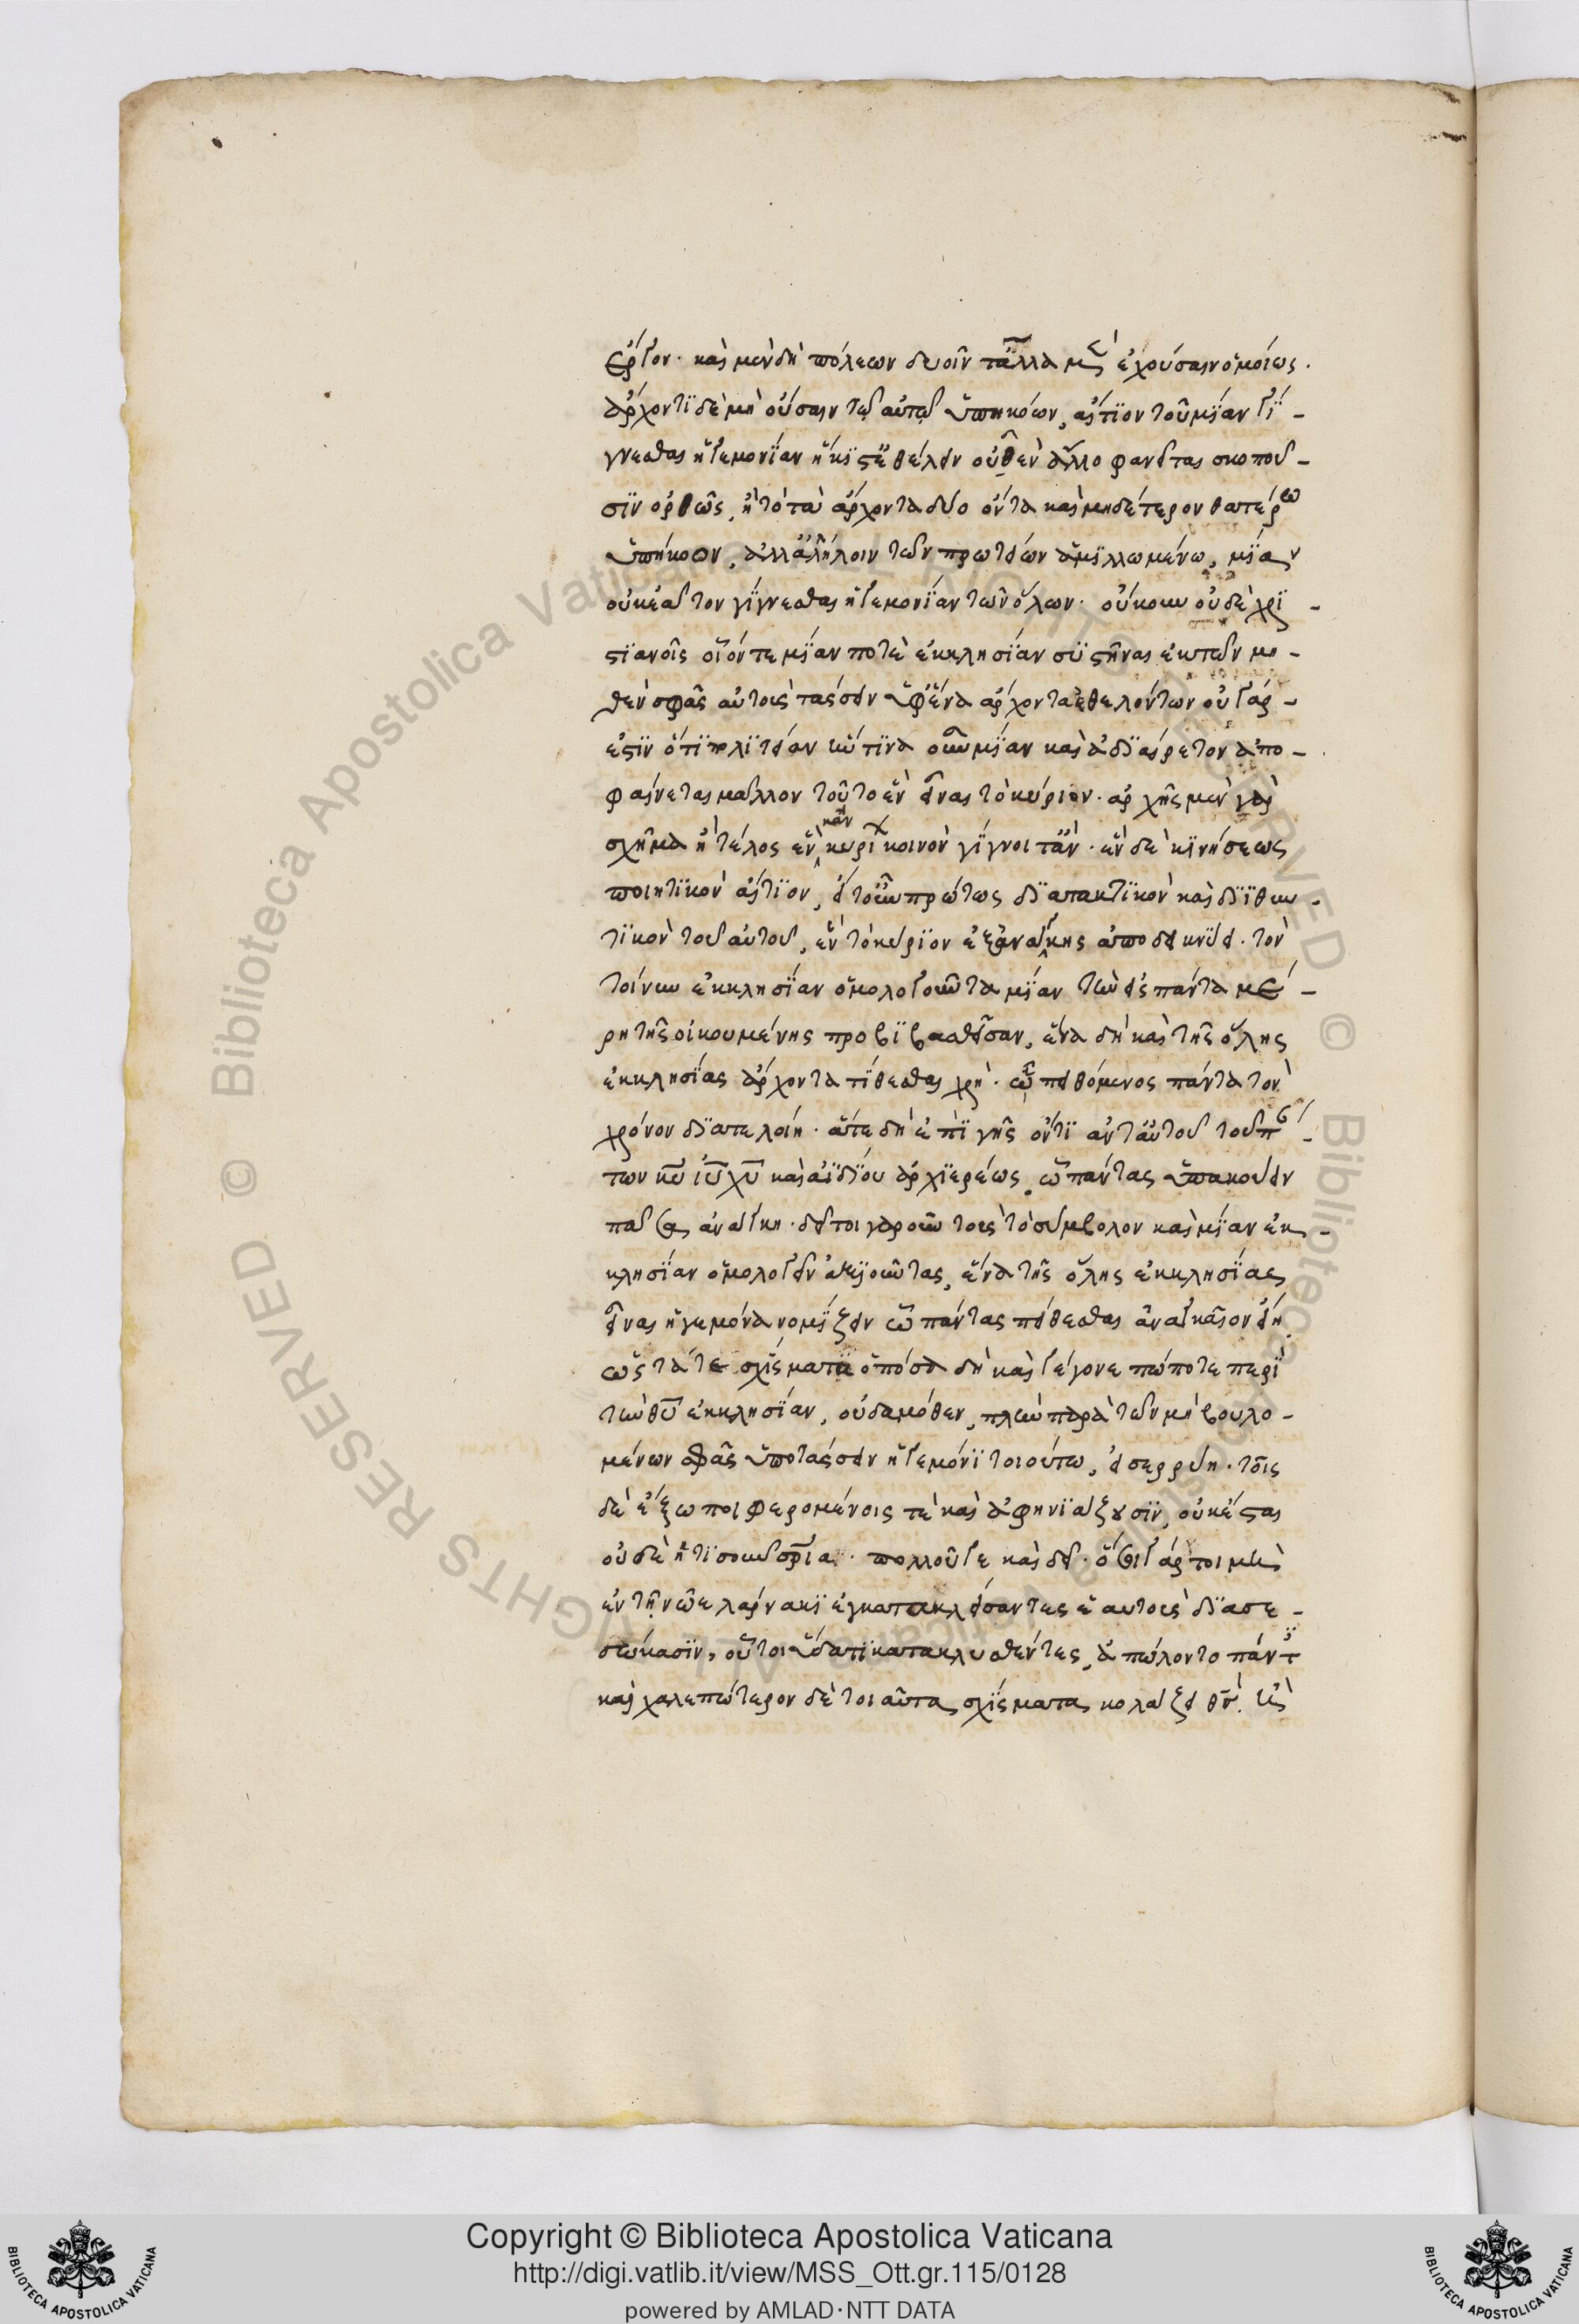 ἔργον. καὶ μὲν δὴ πόλεων δυοῖν τἆλλα μὲν ἐχούσαιν ὁμοίως.
ἄρχοντι δὲ μὴ οὔσαιν τῷ αὐτῷ ὑπηκόων, αἴτιον τοῦ μίαν γί-
γνεσθαι ἡγεμονίαν ἥκιστα ἐθέλειν οὐθὲν ἄλλο φανεῖται σκοποῦ-
σιν ὀρθῶς, ἢ τὸ τὼ ἄρχοντα δύο ὄντα καὶ μηδέτερον θατέρω
ὑπήκοον, ἀλλ' ἀλλήλοιν τῶν πρωτείων ἁμιλλωμένω, μίαν
οὐκ ἐᾶτον γίγνεσθαι ἡγεμονίαν τῶν ὅλων. οὔκουν οὐδὲ χρι-
στιανοῖς οἷόν τε μίαν ποτὲ ἐκκλησίαν συστῆναι ἐκ τῶν μη-
δὲν σφᾶς αὐτοὺς τάσσειν ὑφ' ἕνα ἄρχοντα ἐθελόντων οὐ γάρ
ἐστιν ὅτι πολιτείαν ἥντινα οὖν μίαν καὶ ἀδιαίρετον ἀπο-
φαίνεται μᾶλλον τοῦ τὸ ἓν εἶναι τὸ κύριον. ἀρχῆς μὲν γὰρ
σχῆμα ἢ τέλος ἓν κἂν κυρι κοινὸν γίγνοιτ' ἄν. ἓν δὲ κινήσεως
ποιητικὸν αἴτιον, εἴτουν πρώτως διατακτικὸν καὶ διϊθυν-
τικὸν τοῦ αὐτοῦ, ἓν τὸ κύριον ἐξ ἀνάγκης ἀποδεικνύει. τὸν
τοίνυν ἐκκλησίαν ὁμολογοῦντα μίαν τὴν εἰς πάντα μέ-
ρη τῆς οἰκουμένης προβιβασθεῖσαν, ἕνα δὴ καὶ τῆς ὅλης
ἐκκλησίας ἄρχοντα τίθεσθαι χρή. ᾧ πειθόμενος πάντα τὸν
χρόνον διατελοίη. ἅτε δὴ ἐπὶ γῆς ὄντι ἀντ' αὐτοῦ τοῦ πρώ-
των κυ ιυ χυ καὶ ἀϊδίου ἀρχιερέως, ᾧ πάντας ὑπακούειν
πᾶσα ἀνάγκη. δεῖ τοι γαροῦν τοὺς τὸ σύμβολον καὶ μίαν ἐκ-
κλησίαν ὁμολογεῖν ἀξιοῦντας, ἕνα τῆς ὅλης ἐκκλησίας
εἶναι ἡγεμόνα νομίζειν ᾧ πάντας πείθεσθαι ἀναγκαῖον εἴη
ὡς τά τε σχίσματα ὁπόσα δὴ καὶ γέγονε πώποτε περὶ
τὴν θυ ἐκκλησίαν, οὐδαμόθεν, πλὴν παρὰ τῶν μὴ βουλο-
μένων σφᾶς ὑποτάσσειν ἡγεμόνι τοιούτω, εἰσερρύη. τοῖς
δὲ ἔξω ποι φερομένοις τὲ καὶ ἀφηνιάζουσιν, οὐκ ἔσται
οὐδὲ ἥτις οὖν σρία. πολλοῦ γε καὶ δεῖ. ὅσοι γάρ τοι μὴ
ἐν τῇ νῶε λάρνακι ἐγκατακλείσαντες ἑαυτοὺς διασε-
σώκασιν, οὗτοι ὕδατι κατακλυσθέντες, ἀπώλοντο πάντ
καὶ χαλεπώτερον δὲ τοιαῦτα σχίσματα κολάζει θς. ἢ
Copyright © Biblioteca Apostolica Vaticana
http://digi.vatlib.it/view/MSS_Ott.gr.115/0128
powered by AMLAD·NTT DATA